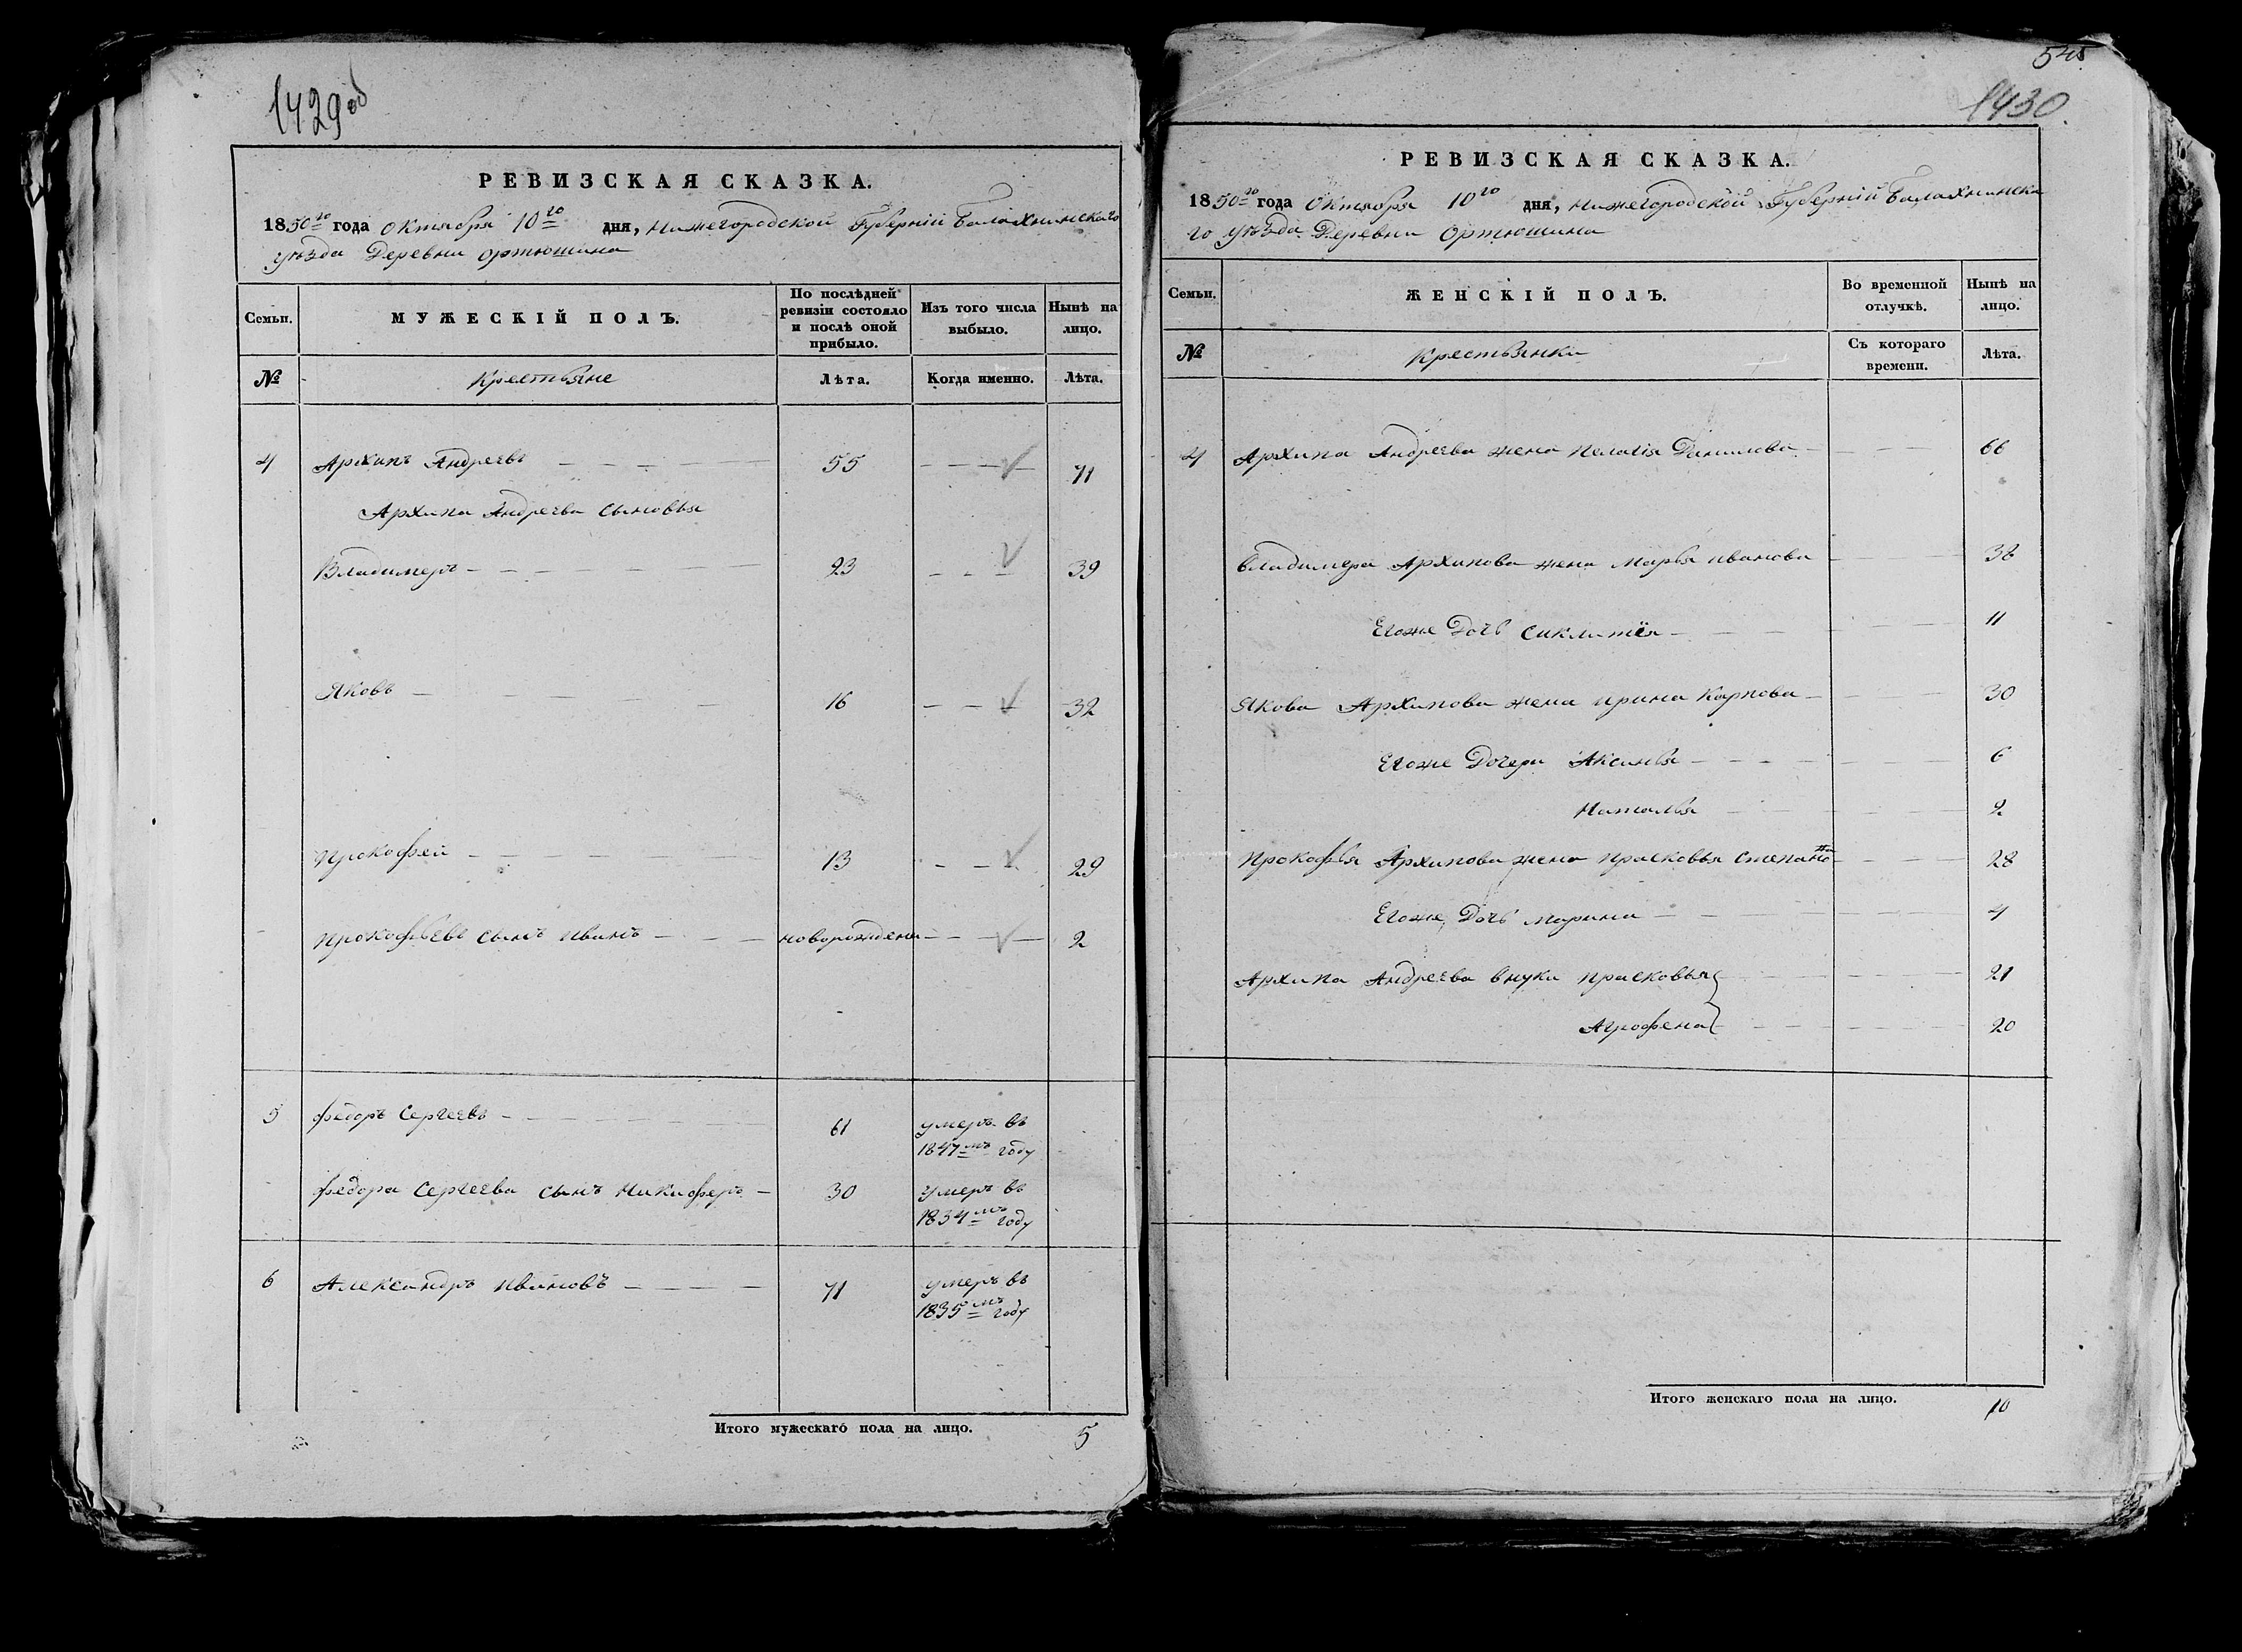 1429 об
РЕВИЗСКАЯ СКАЗКА.
1850го года Октября 10го дня, Нижегородской Губерній Балахнинскаго
уѣзда Деревни Ортюшина
Семьи. МУЖЕСКІЙ ПОЛЪ. По послѣдней ревизіи состояло и послѣ оной прибыло. Изъ того числа выбыло. Нынѣ на лицо.
№ Крестьяне Лѣта. Когда именно. Лѣта.
4 Архипъ Андреевъ 55 71
Архипа Андреева сыновья
Владимеръ 23 39
Яковъ 16 32
Прокофей 13 29
Прокофьевъ сынъ Иванъ новорожденъ 2
5 Федоръ Сергеевъ 61 умеръ въ
1847мъ году
Федора Сергеева сынъ Никиферъ 30 умеръ въ
1834мъ году
6 Александръ Ивановъ 71 умеръ въ
1835мъ году
Итого мужескаго пола на лицо. 5
545
1430.
РЕВИЗСКАЯ СКАЗКА.
1850го года Октября 10го дня, Нижегородской Губерній Балахнинска
го уѣзда Деревни Ортюшина
Семьи. ЖЕНСКІЙ ПОЛЪ. Во временной отлучкѣ. Нынѣ на лицо.
№ Крестьянки Съ котораго времени. Лѣта.
4 Архипа Андреева жена Пелагія Данилова 66
Владимера Архипова жена Марья Иванова 38
Егоже Дочь Сиклитея 11
Якова Архипова жена Ирина Карпова 30
Егоже Дочери Аксинья 6
Наталья 2
Прокофья Архипова жена Прасковья Степанова 28
Егоже Дочь Марина 4
Архипа Андреева внуки Прасковья 21
Аграфена 20
Итого женскаго пола на лицо. 10